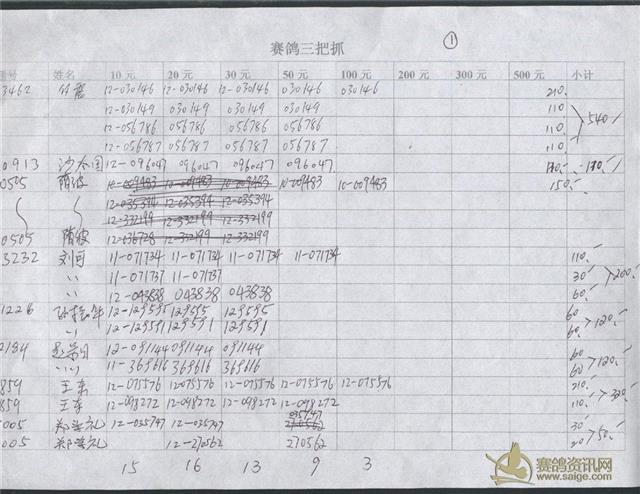 ①
赛鸽三把抓
号 姓名 10 元 20 元 30 元 50 元 100 元 200 元 300 元 500 元 小计
3462 12-030146 12-030146 12-030146 030146 030146 210.
030149 030149 030149 030149 110.
12-056786 056786 056786 056786 110. 540.
12-056787 056787 056787 056787 110.
0913 12-096047 096047 096047 096047
0505 隋波 10-009483 10-009483 10-009483 10-009483 10-009483 150.
12-035394 12-035394 12-035394
12-332199 12-332199 12-332199
0505 隋波 12-332199 12-332199
3232 刘可 11-071734 11-071734 11-071734 11-071734 110.
〃 11-071737 11-071737 30 200.
〃 12-043838 043838 043838 60.
1226 12-129595 129595 129595 60
〃 12-129591 129591 129591 60. 120.
2184 12-091144 091144 091144 60
〃 11-369616 369616 369616 60 120.
859 王东 12-075576 12075576 12-075576 12-075576 12-075576 210.
859 王东 12-098272 12-098272 12-098272 12-098272 110. 320.
005 郑学礼 12-035747 12-035747 035747 30
005 郑学礼 12-270562 270562 20 50.
15 16 13 9 3
赛鸽资讯网
www.saige.com